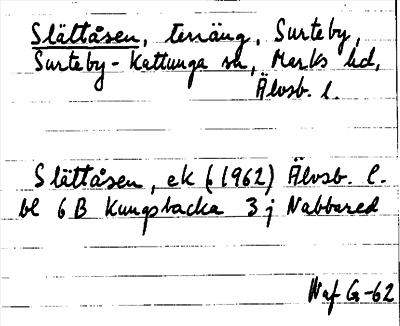 Slättåsen, terräng, Surteby,
Surteby-Kattunga sn, Marks hd,
Älvsb. l.
Slättåsen, ek (1962) Älvsb. l.
bl 6 B Kungsbacka 3 j Nabbared
Waf G-62